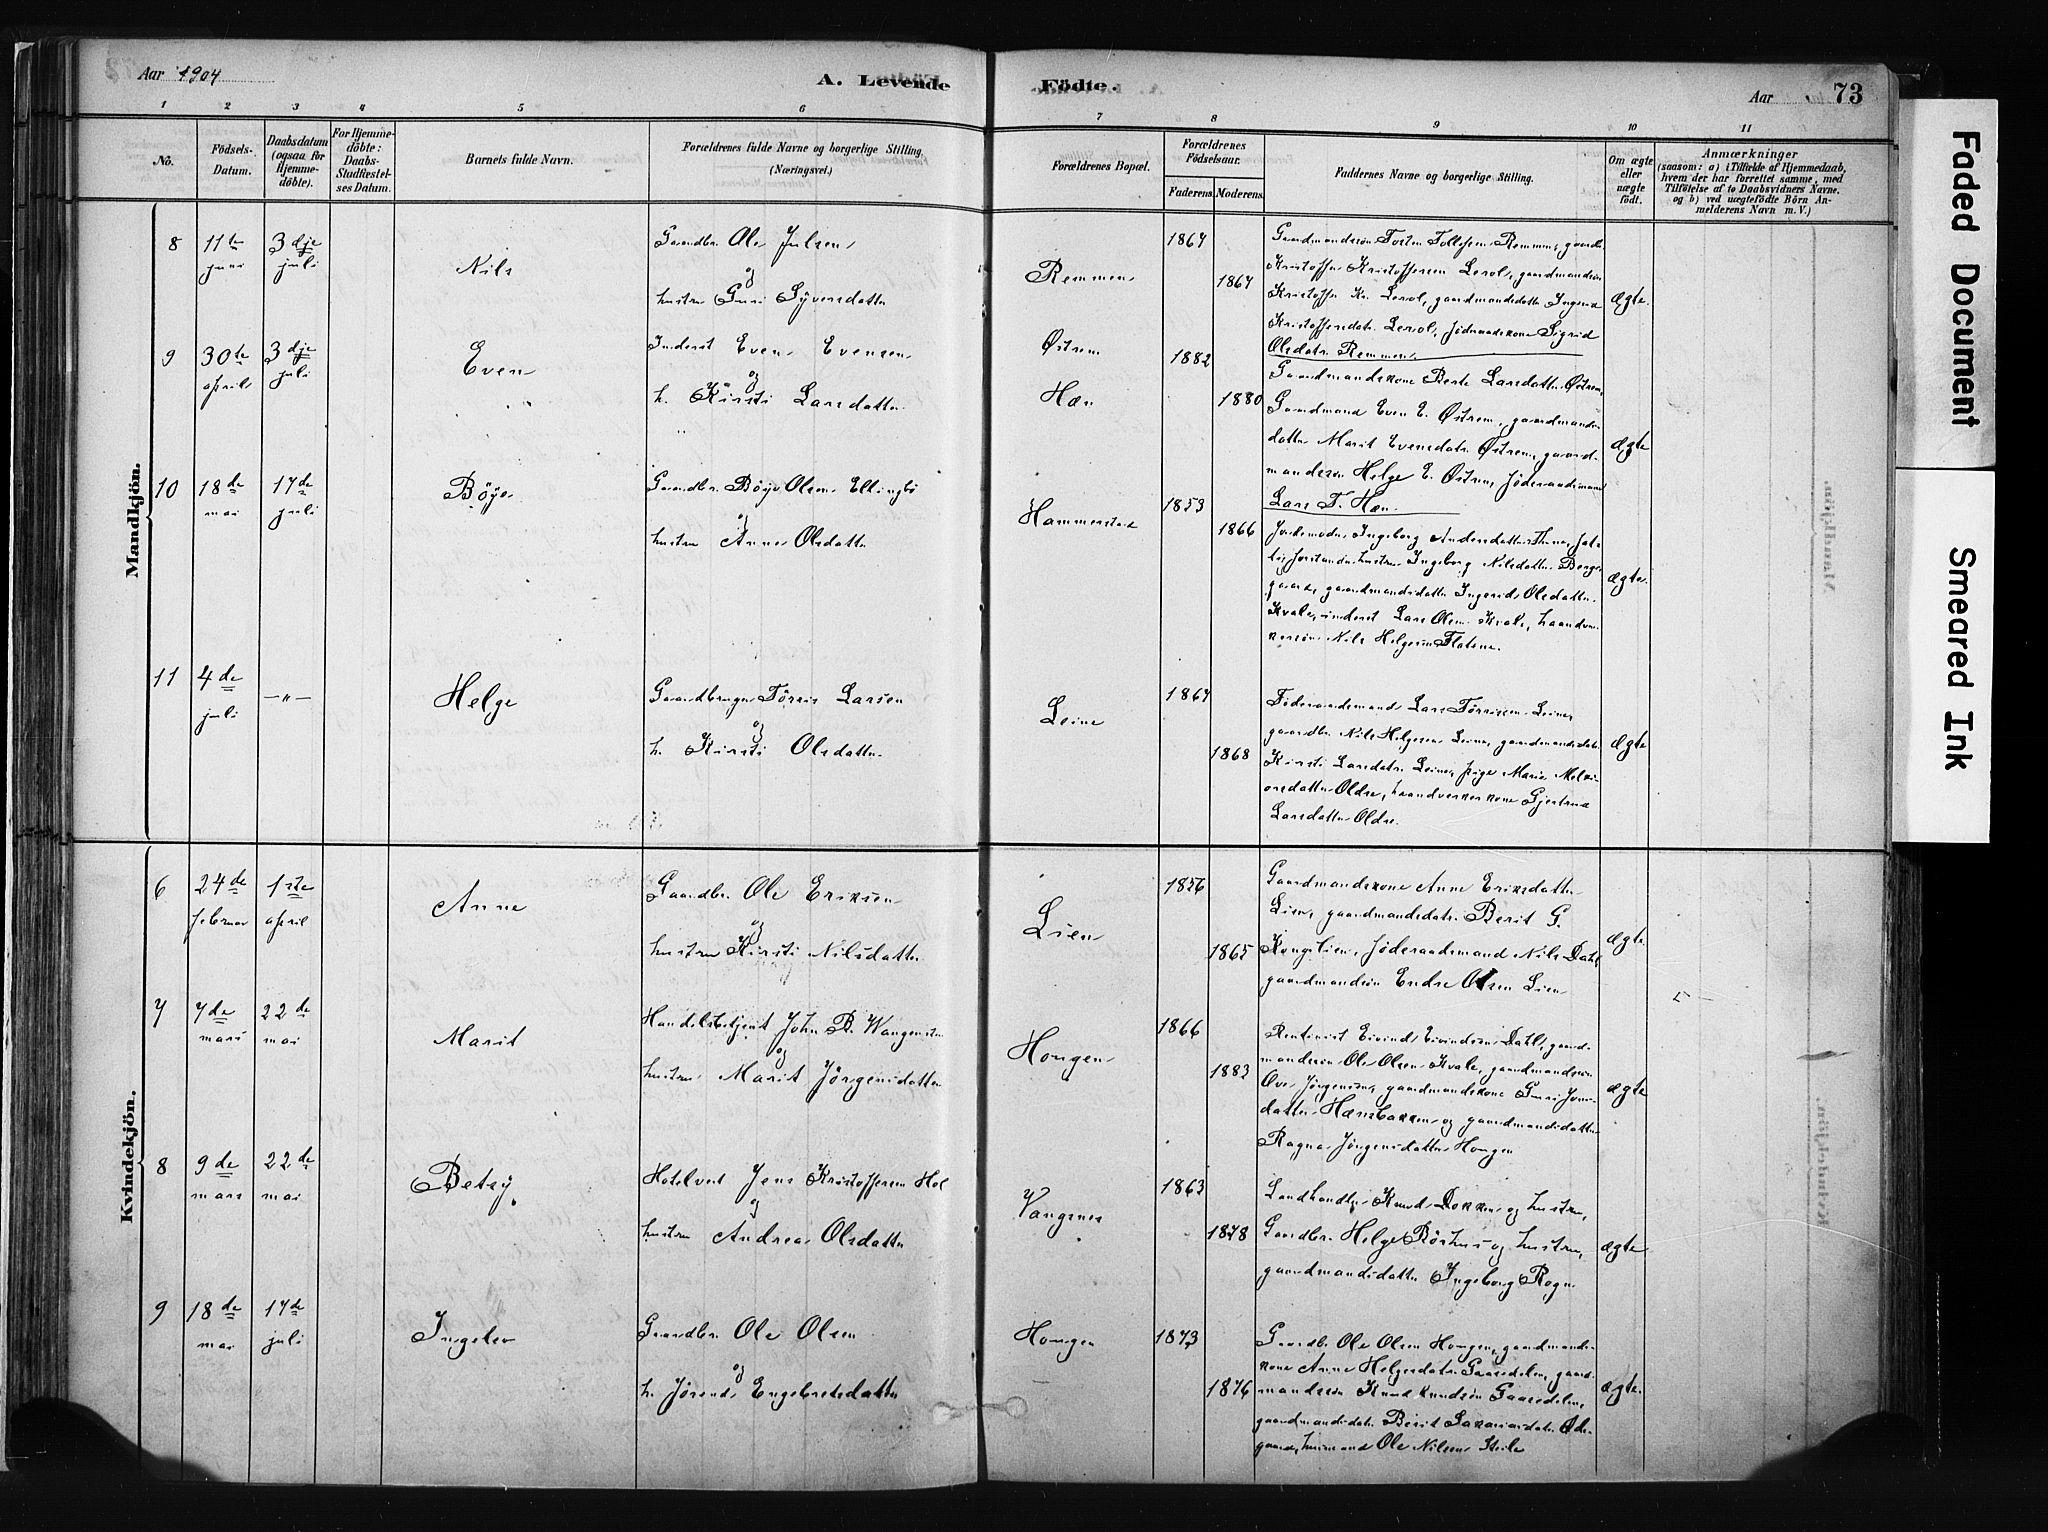 Aar 1904
A. Levende
Födte.
Aar
73
1 2 3 4 5 6 7 8 9 10 11
No.
Födsels-
Datum.
Daabsdatum
(ogsaa for
Hjemme-
döbte).
For Hjemme-
döbte:
Daabs-
Stadfæstel-
ses Datum.
Barnets fulde Navn.
Forældrenes fulde Navne og borgerlige Stilling.
(Næringsvei.)
Forældrenes Bopæl.
Forældrenes
Födselsaar.
Faderens.
Moderens.
Faddernes Navne og borgerlige Stilling.
Om ægte
eller
uægte
født.
Anmærkninger
(saasom: a) i Tilfælde af Hjemmedaab,
hvem der har forrettet samme, med
Tilföielse af to Daabsvidners Navne,
og b) ved uægtefödte Börn An-
melderens Navn m. V.)
Mandkjön.
8
11te
juni
3dje
juli
Nils
Gaardbr. Ole Julsen
og
hustru Guri Syversdatter
Remmen
1867
1867
Gaardmandssön Torsten Tollefsen Remmen, gaardb.
Kristoffer Kristoffersen Lerol, gaardmandssön
Kristoffer Kr. Lerol, gaardmandsdatter Ingerid
Kristoffersdatr. Lerol, föderaadskone Sigrid
Olsdatr. Remmen.
ægte.
9
30te
april
3dje
juli
Even
Inderst Even Evensen
og
h. Kirsti Larsdatter
Østrem
Hæn
1882
1880
Gaardmandskone Berte Larsdatter Østrem,
Gaardmand Even E. Østrem, gaardmands-
datter Marit Evensdatr. Østrem, gaard-
mandssön Helge E. Østrem, föderaadsmand
Lars T. Hæn.
ægte
10
18de
mai
17de
juli
Böye
Gaardbr. Böye Olsen Ellingbö
og
hustru Anne Olsdatter
Hammerstad
1853
1866
Jordemoder Ingeborg Andersdatter Thune, fat-
tigforstander hustru Ingeborg Nilsdatter Berge-
gaard, gaardmandsdatter Ingerid Olsdatter
Kvale, inderst Lars Olsen Kvale, haandver-
kersön Nils Helgesen Flatene.
ægte.
11
4de
juli
—"—
Helge
Gaardbruger Törris Larsen
og
h. Kirsti Olsdatter
Leine
1867
1868
Föderaadsmand Lars Törrissen Leine,
gaardbr. Nils Helgesen Leine, gaardmandsdatr.
Kirsti Larsdatr. Leine, pige Marie Melki-
orsdatter Oldre, haandverkerkone Gjertrud
Larsdatter Oldre.
ægte
Kvindekjön.
6
24de
februar
1ste
april
Anne
Gaardbr. Ole Eriksen
og
hustru Kirsti Nilsdatter
Lien
1856
1865
Gaardmandskone Anne Eriksdatter
Lien, gaardmandsdatr. Berit G.
Kongslien, föderaadsmand Nils Dahl,
gaardmandssön Endre Olsen Lien
ægte
7
7de
mars
22de
mai
Marit
Handelsbetjent John B. Wangensten
og
hustru Marit Jörgensdatter
Hougen
1866
1883
Rentenist Eivind Eivindsen Dahl, gaard-
mandssön Ole Olsen Kvale, gaardmandssön
Ove Jörgensen, gaardmandskone Guri Jons-
datter Hæresbakken og gaardmandsdatter
Ragna Jörgensdatter Hougen
ægte
8
9de
mars
22de
mai
Betsy
Hotelvert Jens Kristoffersen Hol
og
hustru Andrea Olsdatter
Vangsnes
1863
1878
Landhandler Knud Dokken og hustru,
Gaardbr. Helge Röshus og hustru,
gaardmandsdatter Ingeborg Rogn
ægte
9
18de
mai
17de
juli
Ingelev
Gaardbr. Ole Olsen
og
h. Jörend Engebretsdatter
Hougen
1873
1876
Gaardbr. Ole Olsen Hougen, gaardmands-
kone Anne Helgesdatr. Gaasedelen, gaard-
mandssön Knud Knudsön Gaasedelen,
gaardmandsdatr. Berit Sakariasdatr. Öde-
gaard, husmand Ole Nilsen Steile
ægte.
Faded Document
Smeared Ink